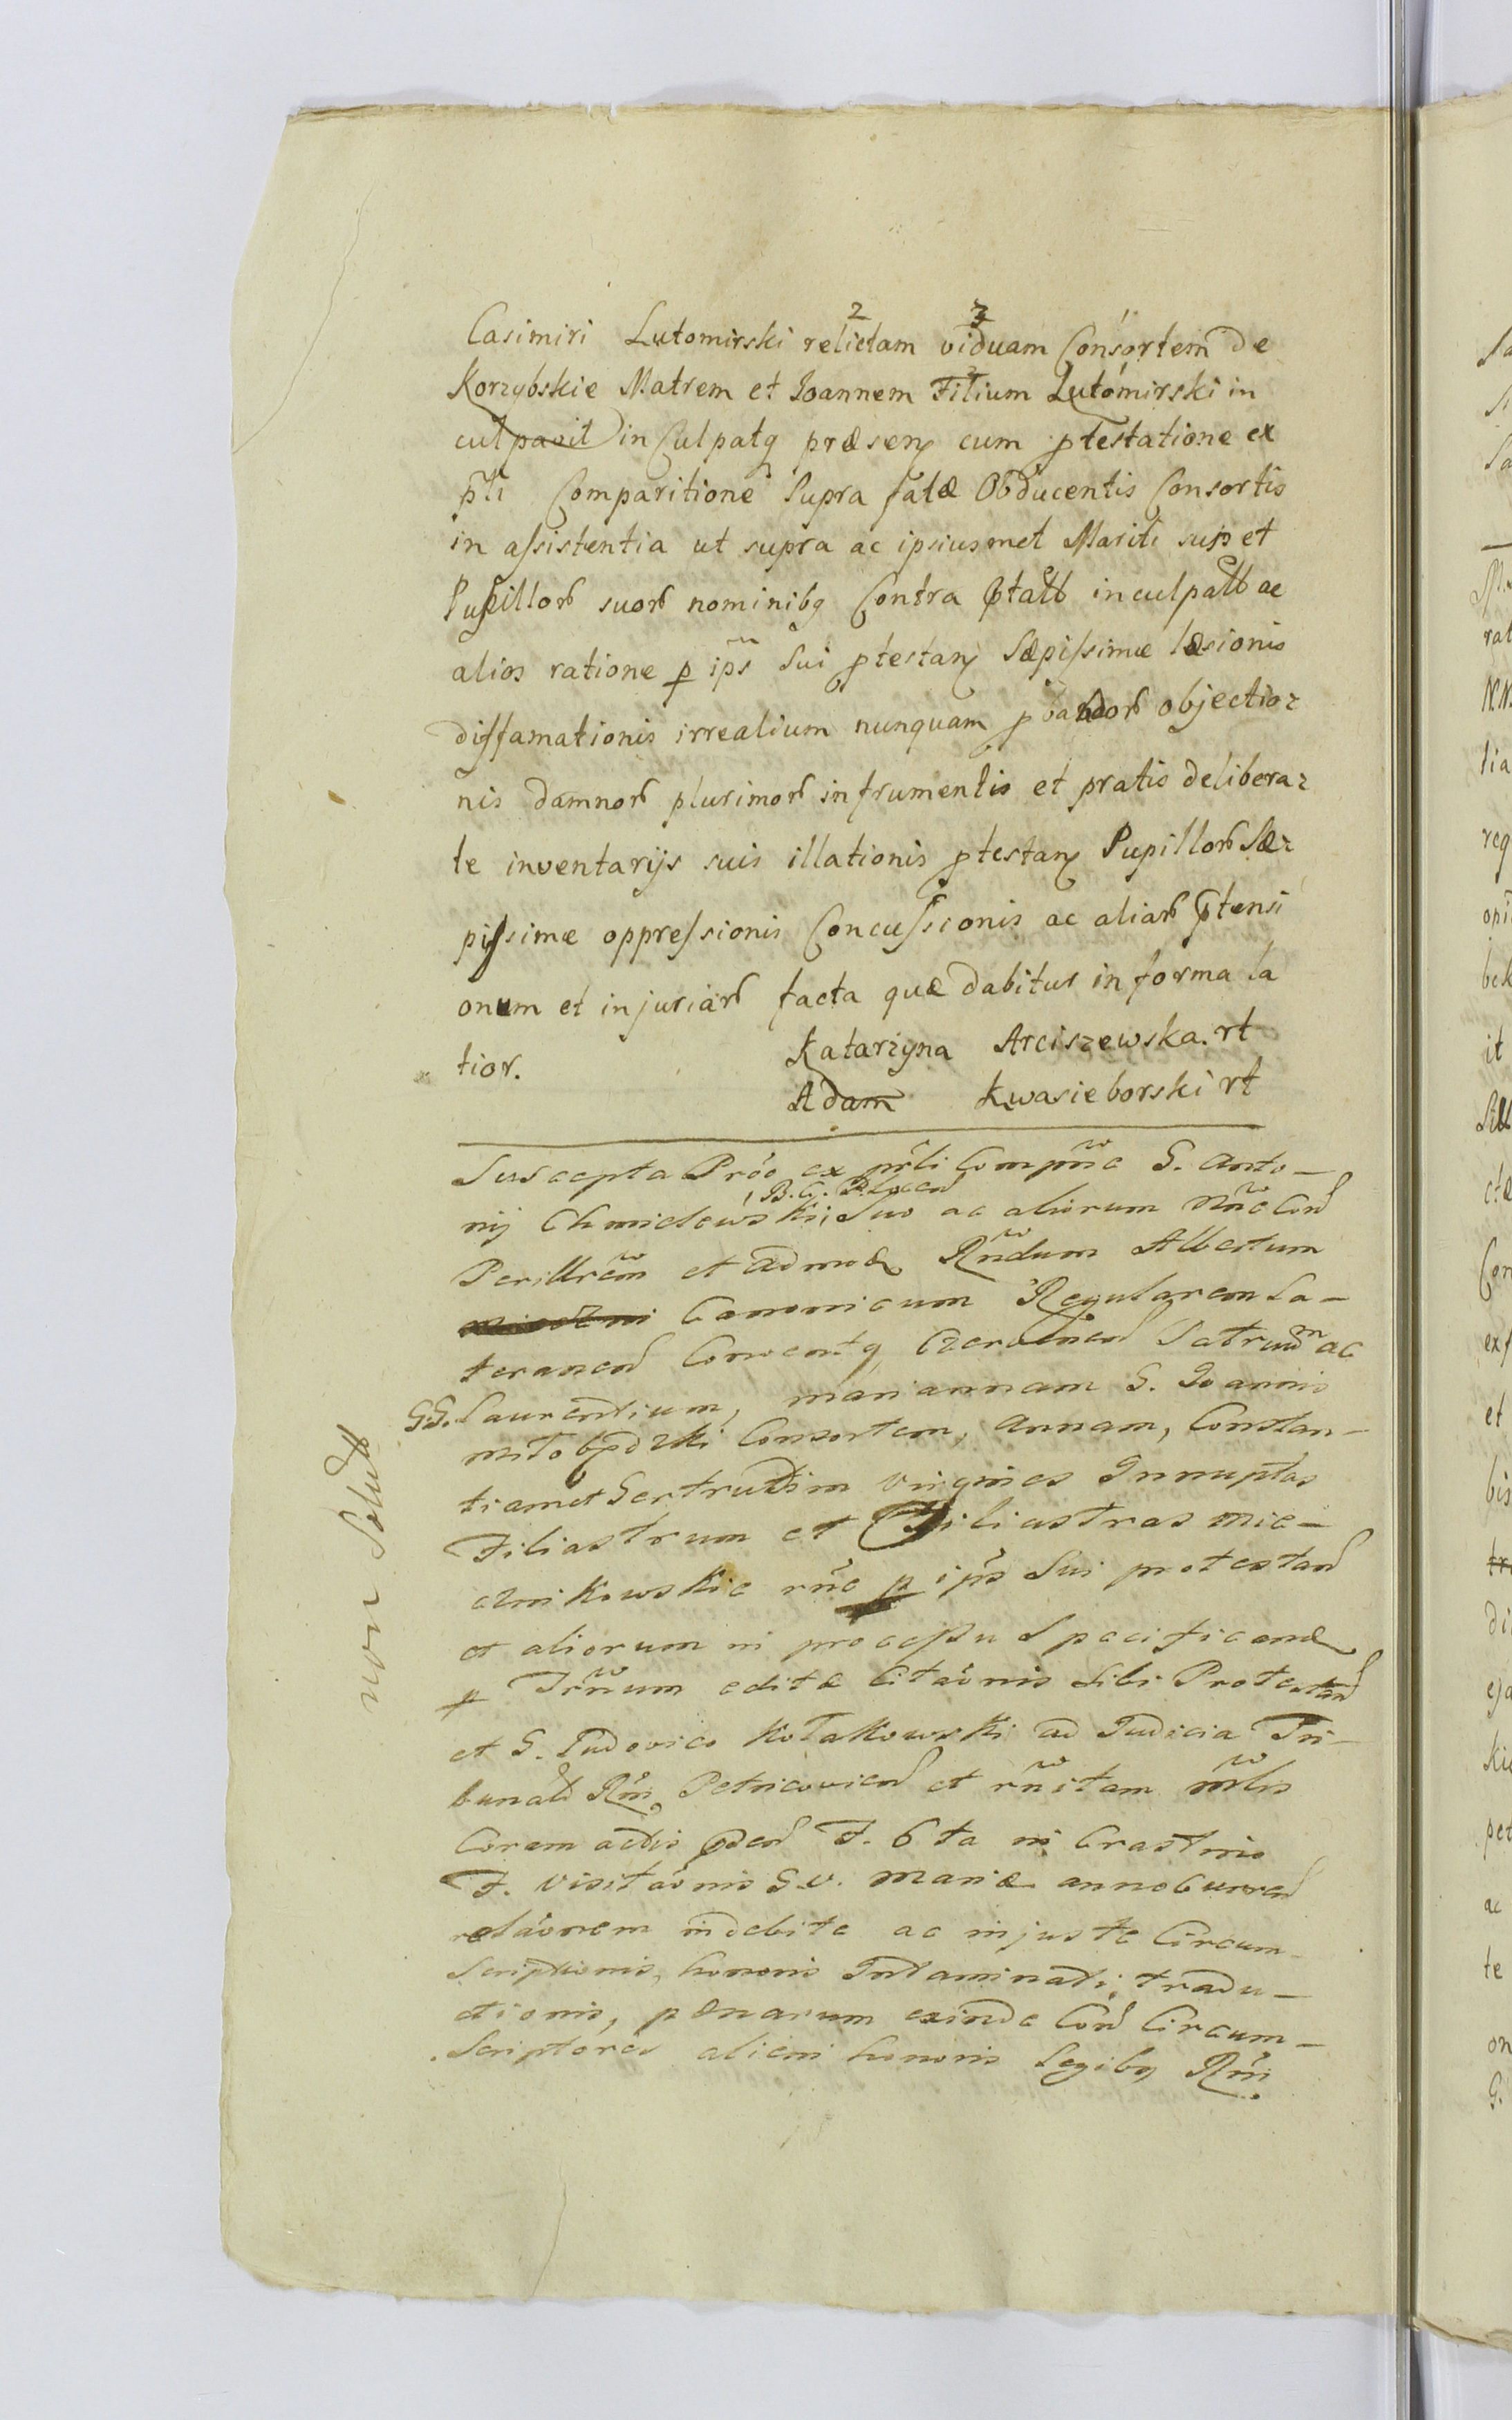 Casimiri Lutomirski relictam viduam Consortem de
Korzybskie Matrem et Joannem Filium Lutomirski in
culpavit in Culpatq præsen cum ptestatione ex
pti Comparitione Supra fatæ Obducentis Consortis
in assistentia ut supra ac ipsiusmet Mariti sui et
Pupillor suor nominibq Contra ptatt inculpatt ac
alios ratione p ips Sui ptestan Sæpissimæ læsionis
diffamationis irrealium nunquam pbandor objectio
nis damnor plurimor in frumentis et pratis delibera
te inventarijs suis illationis ptestan Pupillor Sæ
pissimæ oppressionis Concussionis ac aliar ptensi
onum et injuriar facta quæ dabitur in forma la
tior. Katarzyna Arciszewska. rt
Adam Kwasieborski rt
Suscepta Prôo ex prti Compnne G. Anto-
nij Chmielewski, B. G. Plocen Suo ac aliorum nne Con
Perillrem et admod Rndum Albertum
Canonicum Regularem La-
teranen Conventq Czervinen Patruum ac
GG. Laurentium, mariannam G. Joannis
Consortem, Annam, Constan-
tiam et Gertrudim virgines Innuptas
Filiastrum et Filiastras Mie-
cznikowskie rne p ips Sui protestan
et aliorum in processu Specificand
p Irnum editæ Citaonis Sibi Protestan
et G. Ludovico Kołakowski ad Judicia Tri-
bunald Rni Petricovien et rnitam mlis
Coram actis pden F. 6ta in Crastino
F. Visitaonis B.V. Mariæ anno Curren
relaonem indebite ac injuste Circum-
Scriptionis, honoris Intaminati, tradu-
ctionis, pænarum exinde Con Circum-
Scriptores alieni honoris Legibq Rni
non Solut